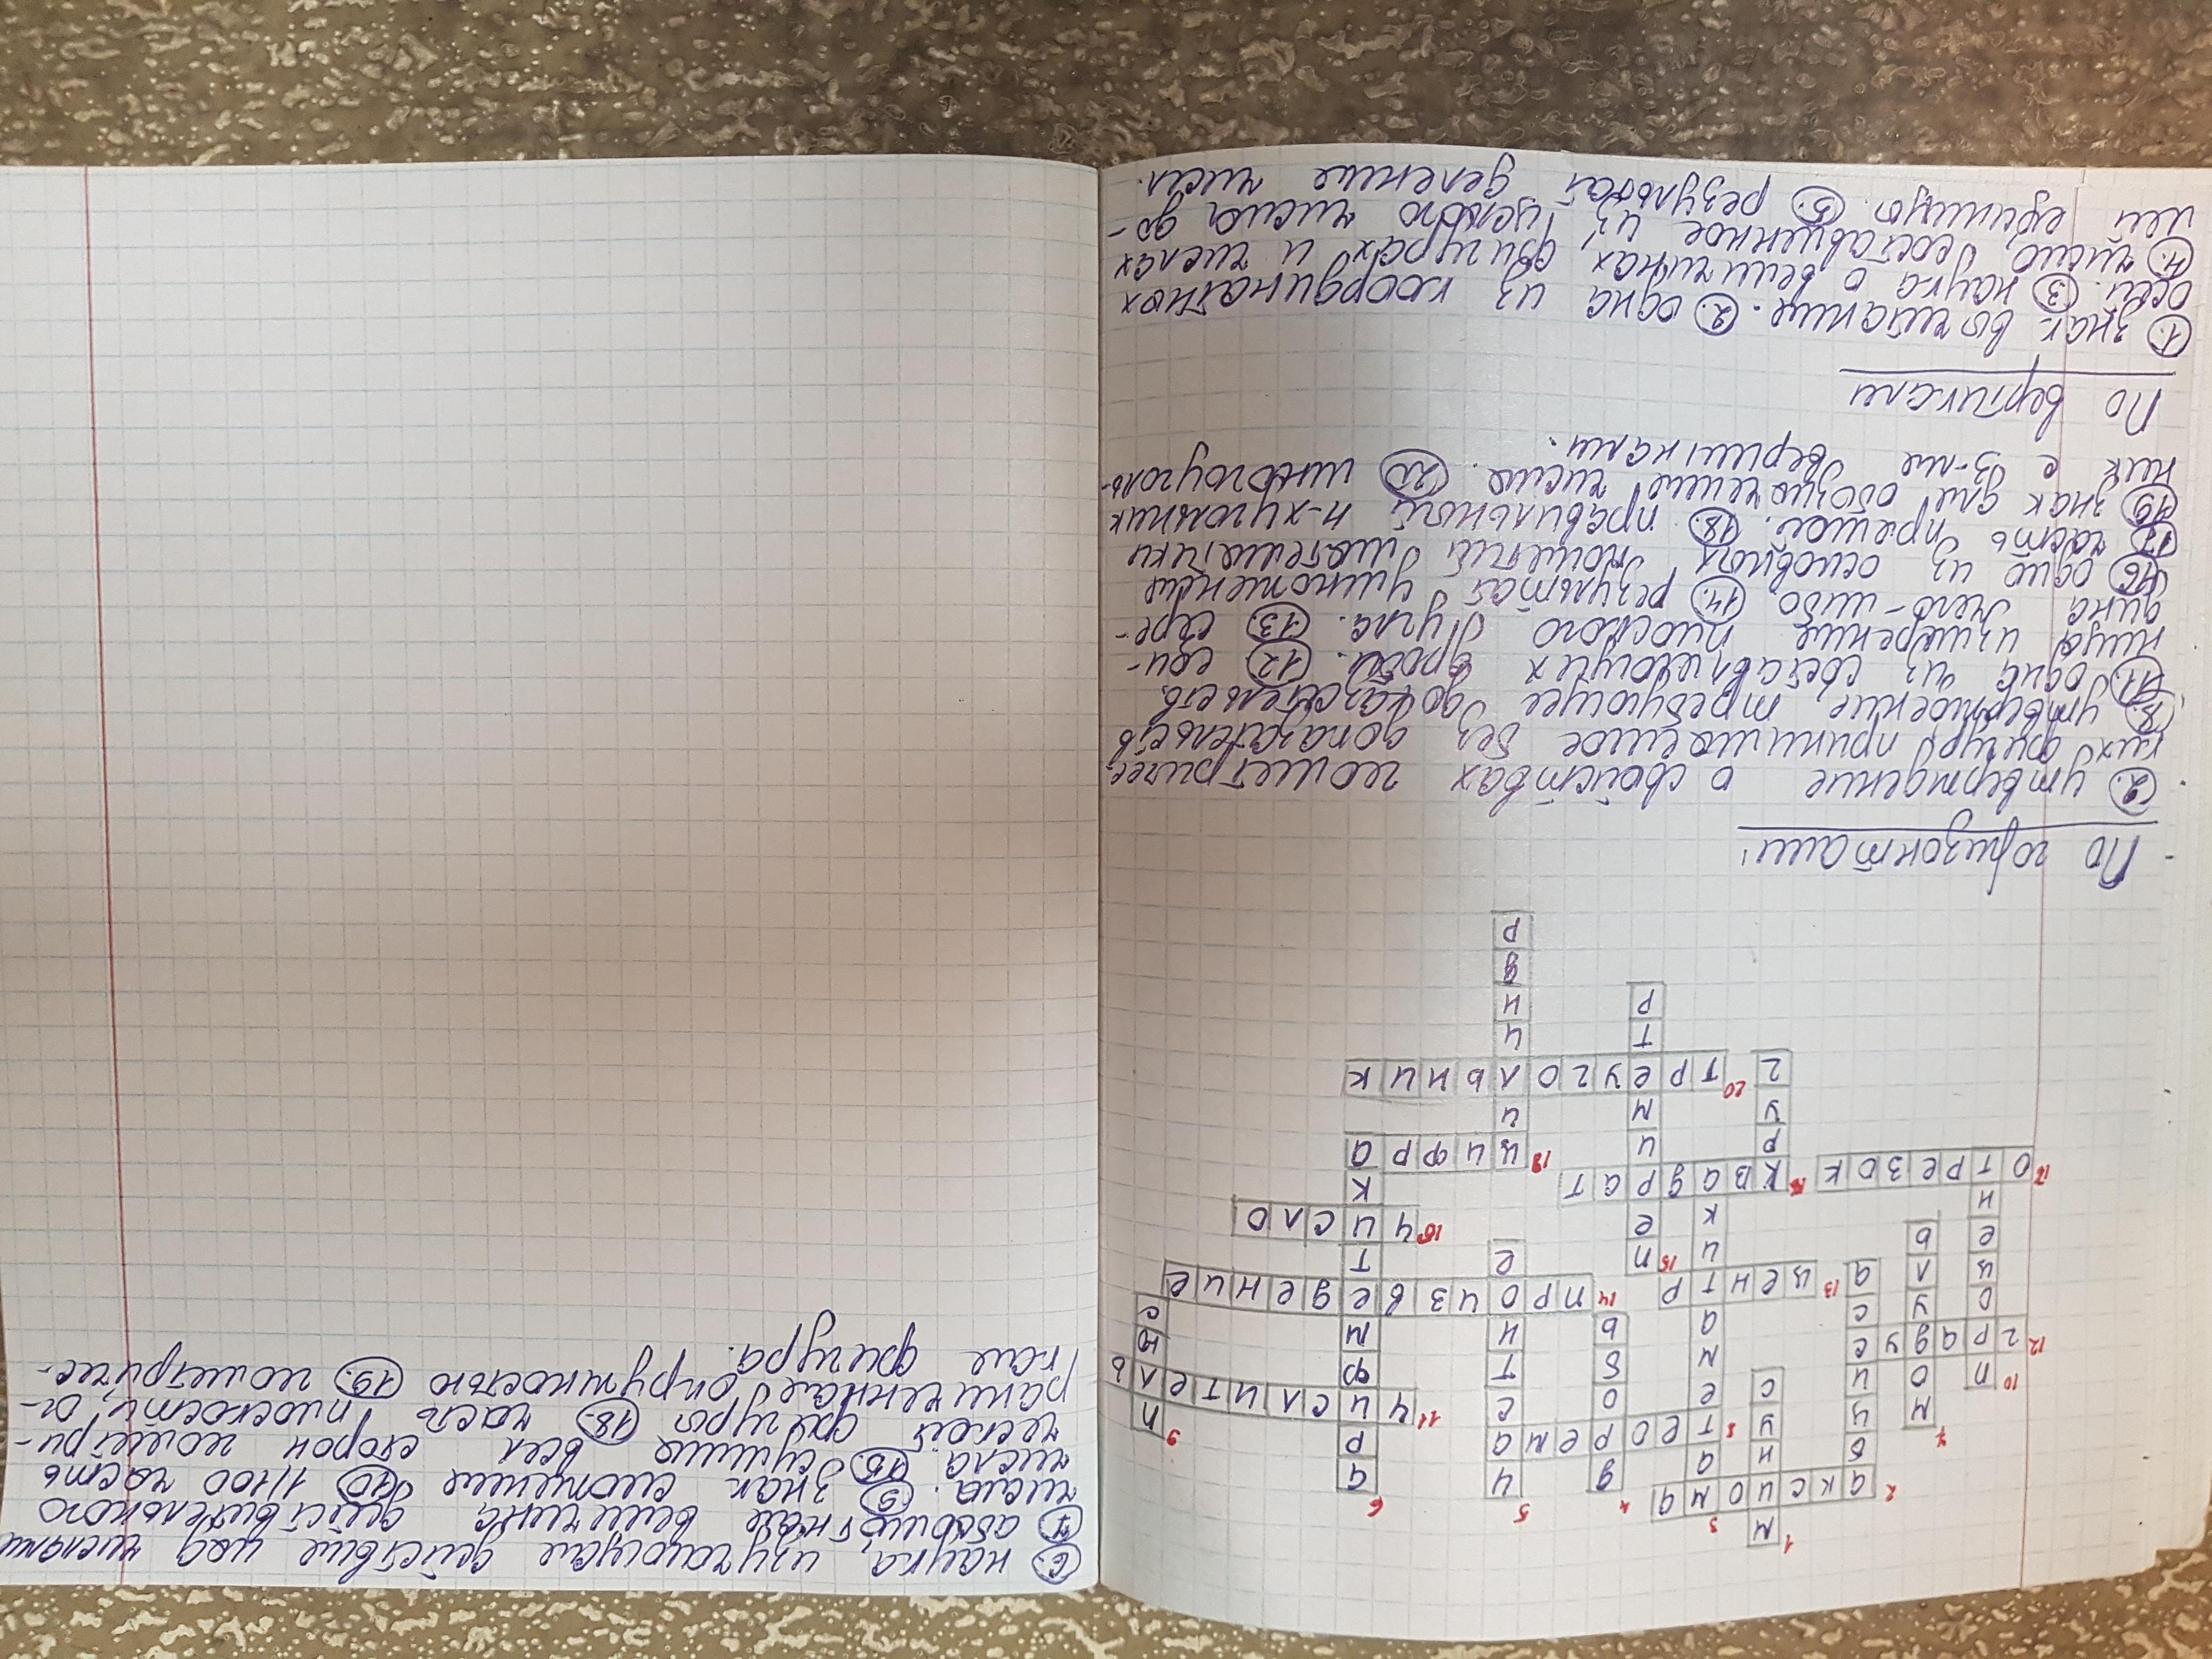 1 М И Н У С
2 А К С И О М А
2 А Б С Ц И С С А
3 М А Т Е М А Т И К А
4 Д Р О Б Ь
5 Ч А С Т Н О Е
6 А Р И Ф М Е Т И К А
7 М О Д У Л Ь
8 Т Е О Р Е М А
9 П Л Ю С
10 П Р О Ц Е Н Т
11 Ч И С Л И Т Е Л Ь
12 Г Р А Д У С
13 Ц Е Н Т Р
14 П Р О И З В Е Д Е Н И Е
15 П Е Р И М Е Т Р
16 Ч И С Л О
17 О Т Р Е З О К
18 К В А Д Р А Т
К Р У Г
19 Ц И Ф Р А
Ц И Л И Н Д Р
20 Т Р Е У Г О Л Ь Н И К
По горизонтали:
2. утверждение о свойствах геометричес-
ких фигур принимаемое без доказательств
8. утверждение, требующее доказательств.
11. одна из составляющих дроби. 12. еди-
ница измерение плоского угла. 13. сере-
дина чего-либо. 14. результат умножения
16 одно из основных понятий математики
17 часть прямой. 18. правильной n-хугольник
19. знак для обозначение числа. 20. многоуголь-
ник с 3-мя вершинами.
По вертикали
1. знак вычитание. 2. одна из координатных
осей. 3. наука о величинах, фигурах и числах
4. число, составленное из целого числа до-
лей единицу. 5. результат деление чисел.
6. наука, изучающая действие над числами
7. абсолютная величина действительного
числа. 9. знак сложение 10. 1/100 часть
числа. 15. сумма всех сторон геометри-
ческой фигуры 18. часть плоскости, ог-
раниченная окружностью 19. геометричес-
кая фигура.